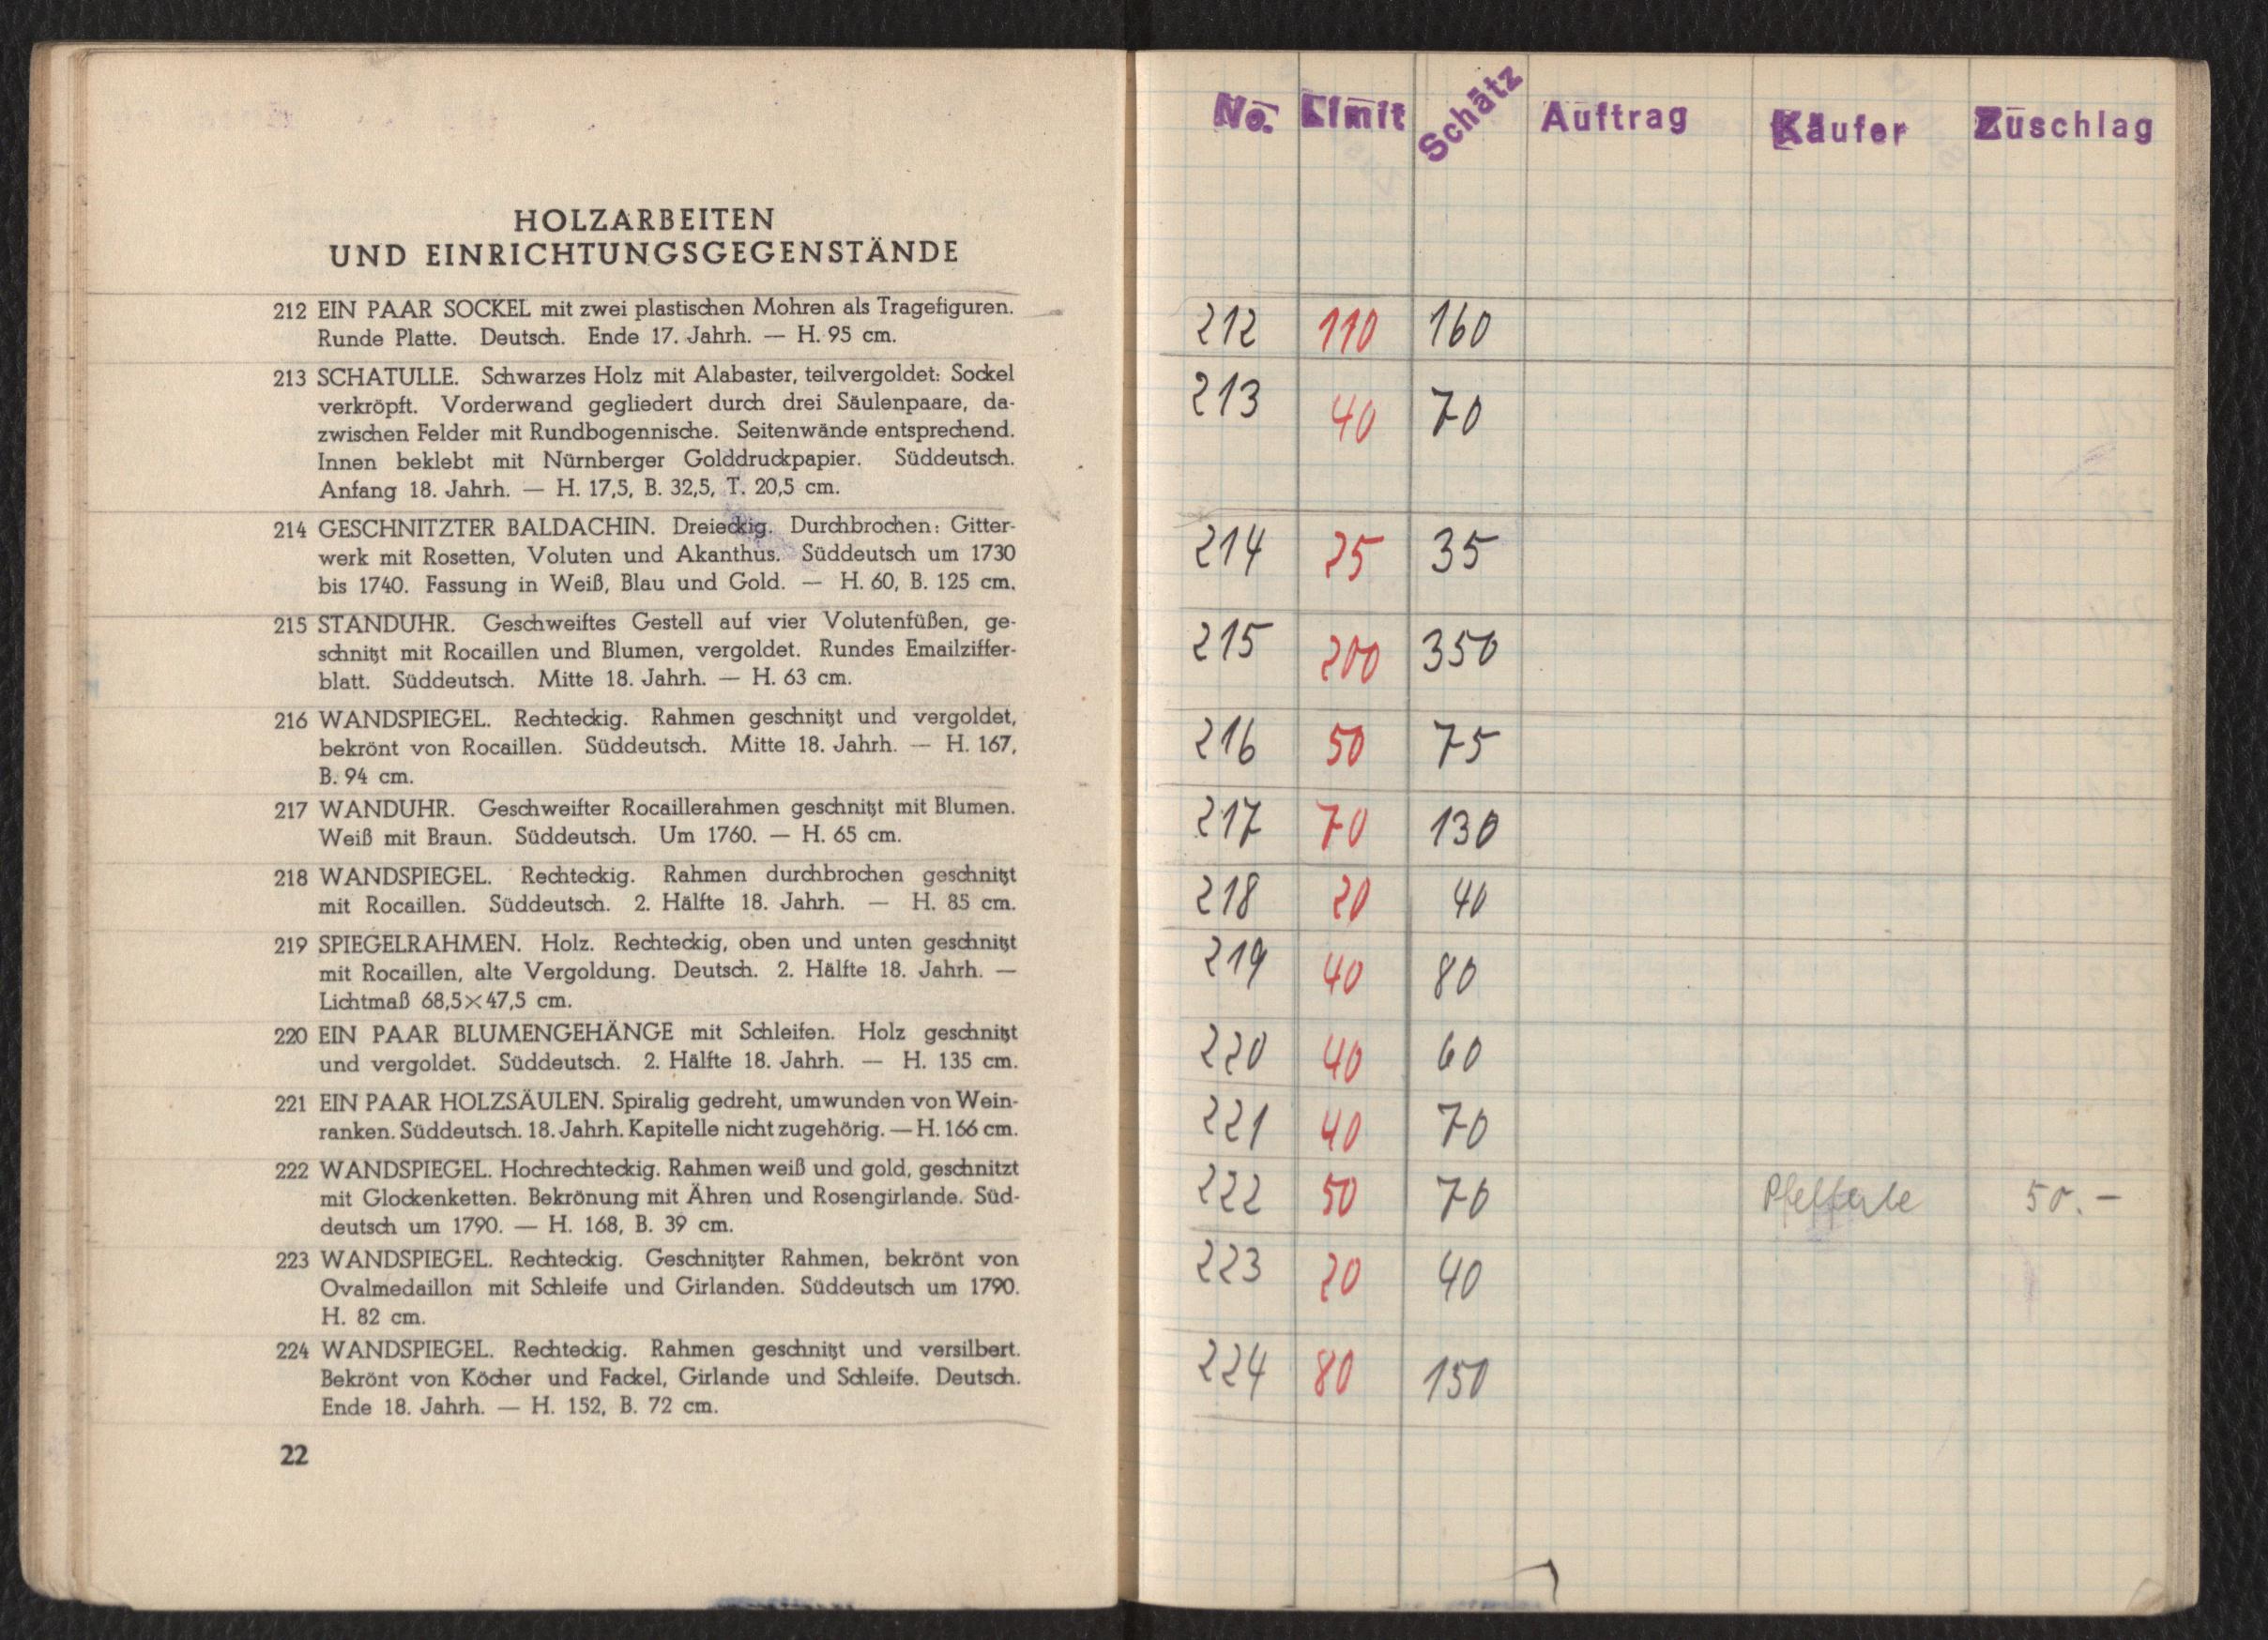 HOLZARBEITEN
UND EINRICHTUNGSGEGENSTÄNDE
212 EIN PAAR SOCKEL mit zwei plastischen Mohren als Tragefiguren.
Runde Platte. Deutsch. Ende 17. Jahrh. — H. 95 cm.
213 SCHATULLE. Schwarzes Holz mit Alabaster, teilvergoldet: Sockel
verkröpft. Vorderwand gegliedert durch drei Säulenpaare, da-
zwischen Felder mit Rundbogennische. Seitenwände entsprechend.
Innen beklebt mit Nürnberger Golddruckpapier. Süddeutsch.
Anfang 18. Jahrh. — H. 17,5, B. 32,5, T. 20,5 cm.
214 GESCHNITZTER BALDACHIN. Dreieckig. Durchbrochen: Gitter-
werk mit Rosetten, Voluten und Akanthus. Süddeutsch um 1730
bis 1740. Fassung in Weiß, Blau und Gold. — H. 60, B. 125 cm.
215 STANDUHR. Geschweiftes Gestell auf vier Volutenfüßen, ge-
schnitzt mit Rocaillen und Blumen, vergoldet. Rundes Emailziffer-
blatt. Süddeutsch. Mitte 18. Jahrh. — H. 63 cm.
216 WANDSPIEGEL. Rechteckig. Rahmen geschnitzt und vergoldet,
bekrönt von Rocaillen. Süddeutsch. Mitte 18. Jahrh. — H. 167,
B. 94 cm.
217 WANDUHR. Geschweifter Rocaillerahmen geschnitzt mit Blumen.
Weiß mit Braun. Süddeutsch. Um 1760. — H. 65 cm.
218 WANDSPIEGEL. Rechteckig. Rahmen durchbrochen geschnitzt
mit Rocaillen. Süddeutsch. 2. Hälfte 18. Jahrh. — H. 85 cm.
219 SPIEGELRAHMEN. Holz. Rechteckig, oben und unten geschnitzt
mit Rocaillen, alte Vergoldung. Deutsch. 2. Hälfte 18. Jahrh. —
Lichtmaß 68,5×47,5 cm.
220 EIN PAAR BLUMENGEHÄNGE mit Schleifen. Holz geschnitzt
und vergoldet. Süddeutsch. 2. Hälfte 18. Jahrh. — H. 135 cm.
221 EIN PAAR HOLZSÄULEN. Spiralig gedreht, umwunden von Wein-
ranken. Süddeutsch. 18. Jahrh. Kapitelle nicht zugehörig. — H. 166 cm.
222 WANDSPIEGEL. Hochrechteckig. Rahmen weiß und gold, geschnitzt
mit Glockenketten. Bekrönung mit Ähren und Rosengirlande. Süd-
deutsch um 1790. — H. 168, B. 39 cm.
223 WANDSPIEGEL. Rechteckig. Geschnitzter Rahmen, bekrönt von
Ovalmedaillon mit Schleife und Girlanden. Süddeutsch um 1790.
H. 82 cm.
224 WANDSPIEGEL. Rechteckig. Rahmen geschnitzt und versilbert.
Bekrönt von Köcher und Fackel, Girlande und Schleife. Deutsch.
Ende 18. Jahrh. — H. 152, B. 72 cm.
22
No. Limit Schätz Auftrag Käufer Zuschlag
212 110 160
213 40 70
214 25 35
215 200 350
216 50 75
217 70 130
218 20 40
219 40 80
220 40 60
221 40 70
222 50 70 Pfefferle 50.-
223 20 40
224 80 150